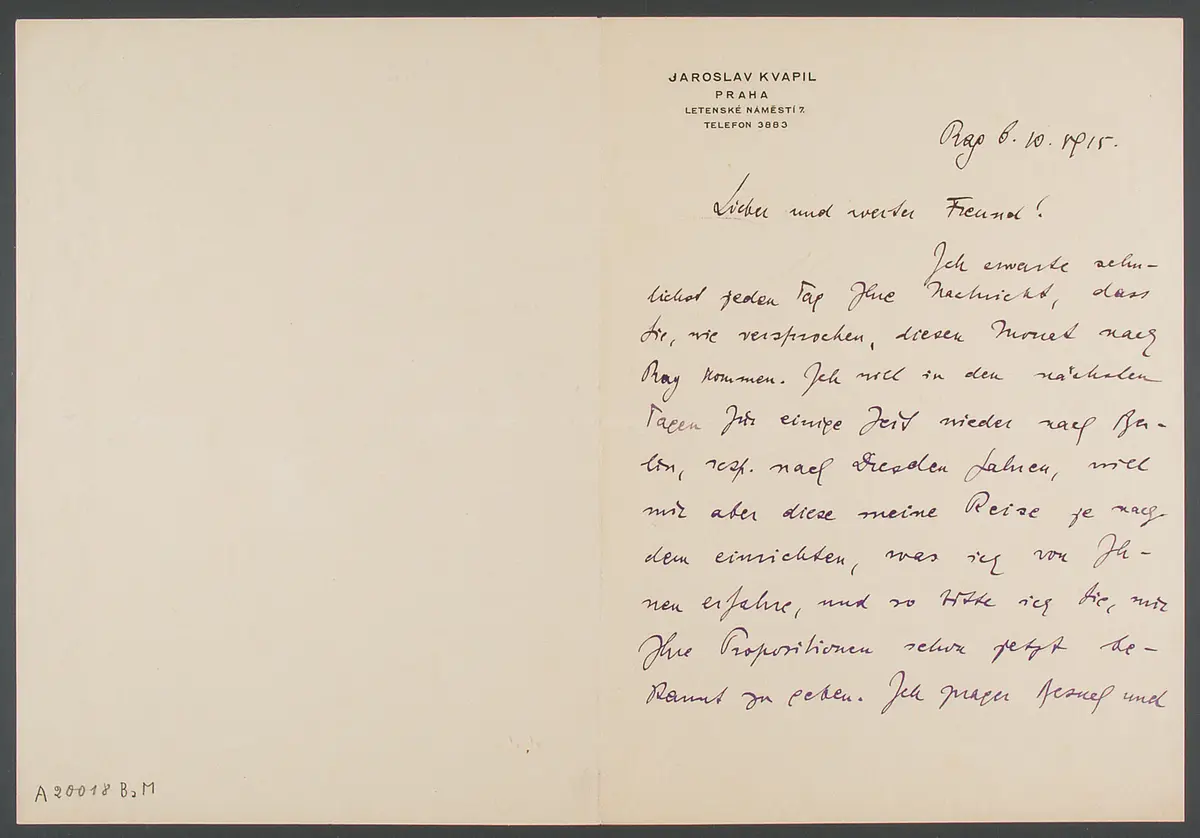 JAROSLAV KVAPIL
PRAHA
LETENSKÉ NÁMĚSTÍ 7.
TELEFON 3883
Prag 6. 10. 1915.
Lieber und werter Freund!
Ich erwarte sehn-
lichst jeden Tag Ihre Nachricht, dass
Sie, wie versprochen, diesen Monat nach
Prag kommen. Ich will in den nächsten
Tagen für einige Zeit wieder nach Ber-
lin, resp. nach Dresden fahren, will
mir aber diese meine Reise je nach
dem einrichten, was ich von Ih-
nen erfahre, und so bitte ich Sie, mir
Ihre Propositionen schon jetzt be-
kannt zu geben. Ihr prager Besuch und
A 20018 BaM